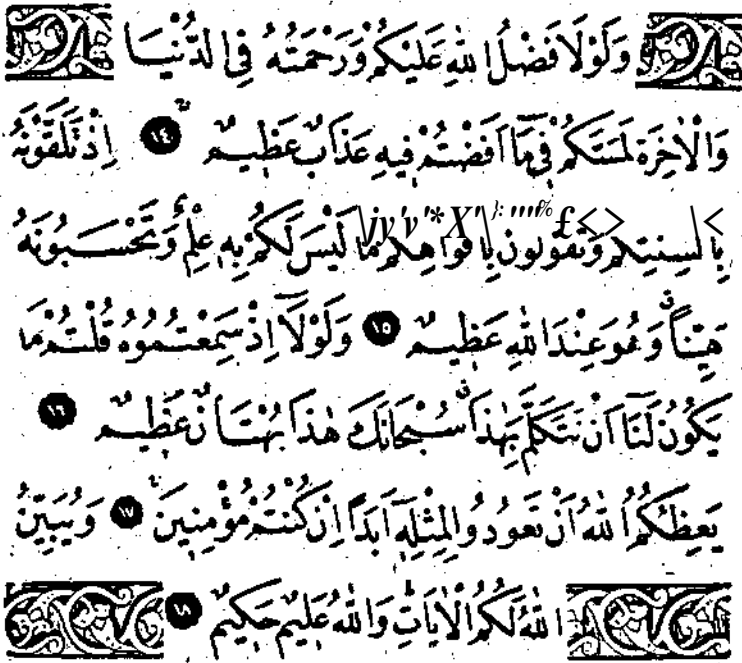 وَلَوْلَا فَضْلُ اللّٰهِ عَلَيْكُمْ وَرَحْمَتُهُ فِي الدُّنْيَا
وَالْاٰخِرَةِ لَمَسَّكُمْ فِي مَٓا اَفَضْتُمْ فِيهِ عَذَابٌ عَظِيمٌ ۚ ﴿١٤﴾ اِذْ تَلَقَّوْنَهُ
بِاَلْسِنَتِكُمْ وَتَقُولُونَ بِاَفْوَاهِكُمْ مَا لَيْسَ لَكُمْ بِهِ عِلْمٌ وَتَحْسَبُونَهُ
هَيِّنًاۗ وَهُوَ عِنْدَ اللّٰهِ عَظِيمٌ ﴿١٥﴾ وَلَوْلَٓا اِذْ سَمِعْتُمُوهُ قُلْتُمْ مَا
يَكُونُ لَنَٓا اَنْ نَتَكَلَّمَ بِهٰذَاۗ سُبْحَانَكَ هٰذَا بُهْتَانٌ عَظِيمٌ ﴿١٦﴾
يَعِظُكُمُ اللّٰهُ اَنْ تَعُودُوا لِمِثْلِهِٓ اَبَدًا اِنْ كُنْتُمْ مُؤْمِنِينَۚ ﴿١٧﴾ وَيُبَيِّنُ
اللّٰهُ لَكُمُ الْاٰيَاتِۜ وَاللّٰهُ عَلِيمٌ حَكِيمٌ ﴿١٨﴾